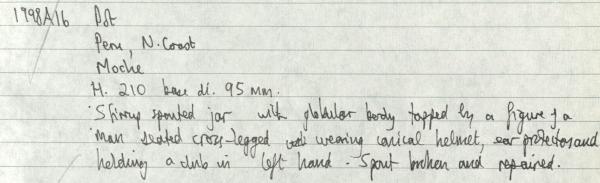 1998A16 Pot
Peru, N. Coast
Moche
H. 210 base di. 95 mm.
Stirrup spouted jar with globular body topped by a figure of a
man seated cross-legged wearing conical helmet, ear protectors and
holding a club in left hand. Spout broken and repaired.